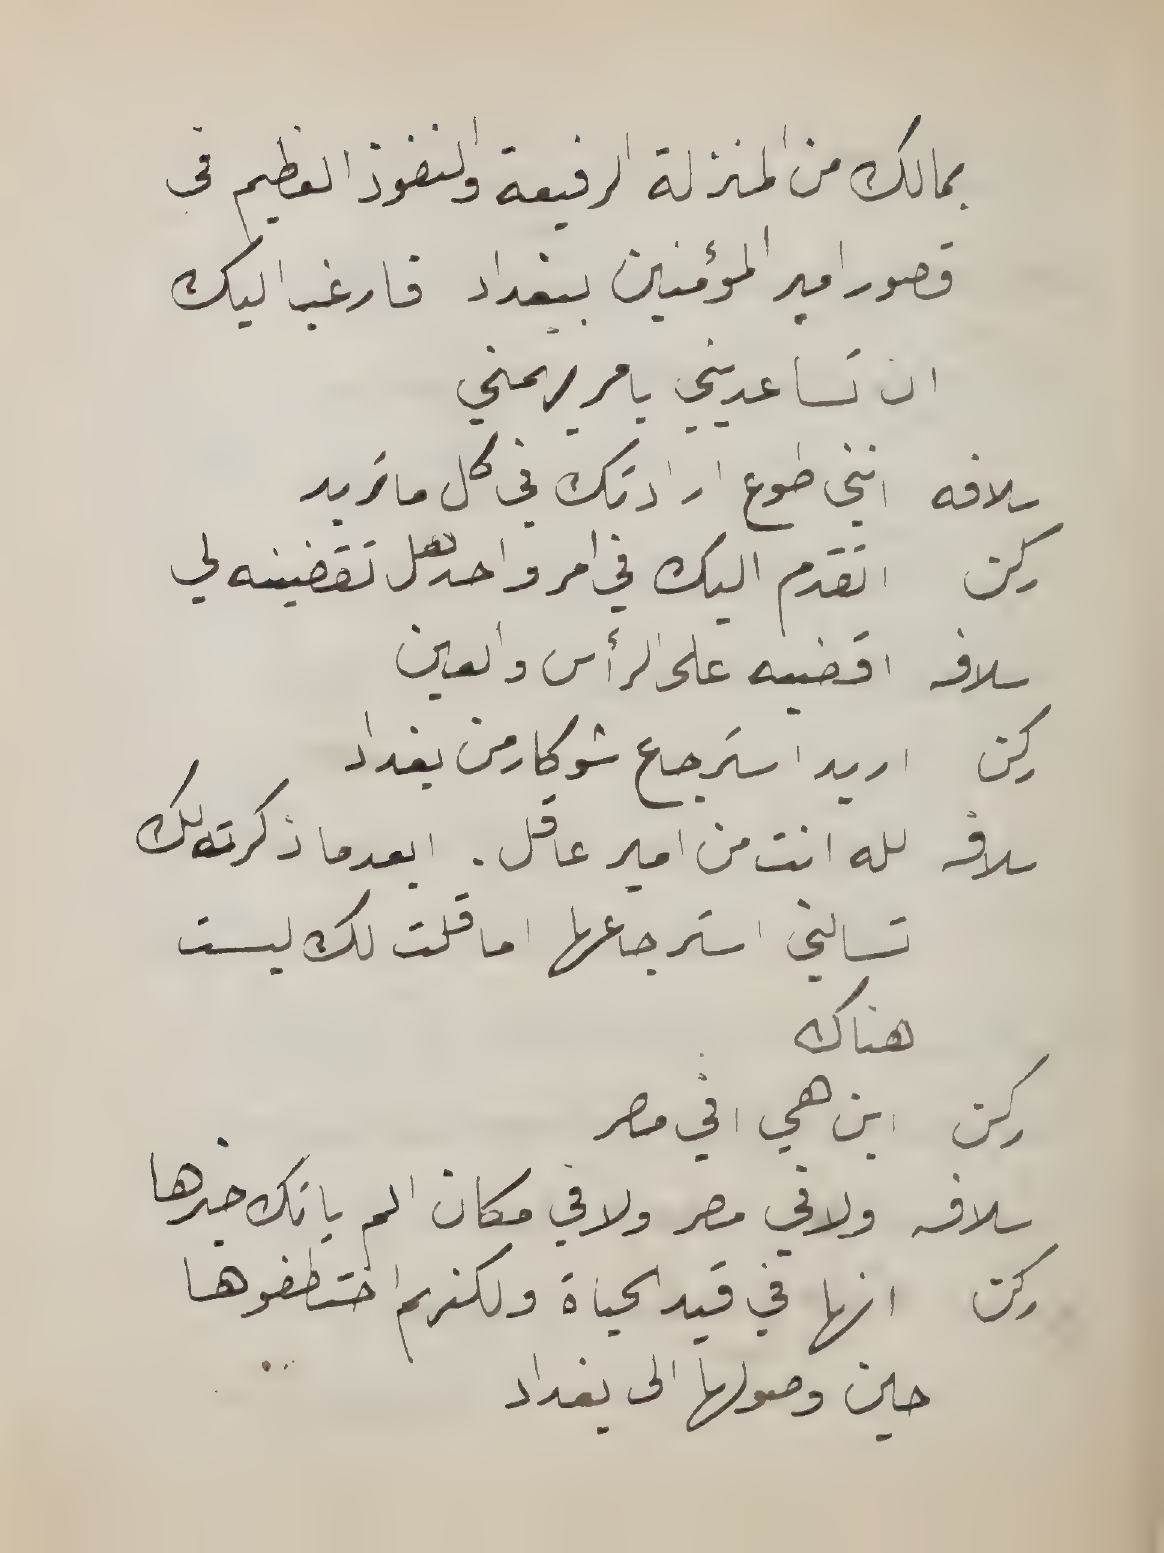 بمالك من المنزلة الرفيعة والنفوذ العظيم في
قصور امير المؤمنين ببغداد فارغب اليك
ان تساعديني بامر يهمني
سلافه انني طوع ارادتك في كل ما تريد
ركن اتقدم اليك في امر واحد هل تقضينه لي
سلافه اقضيه على الرأس والعين
ركن اريد استرجاع شوكار من بغداد
سلافه لله انت من امير عاقل . ابعد ما ذكرته لك
تسالني استرجاعها اما قلت لك ليست
هناك
ركن اين هي افي مصر
سلافه ولا في مصر ولا في مكان الم ياتك خبرها
ركن انها في قيد الحياة ولكنهم اختطفوها
حين وصولها الى بغداد